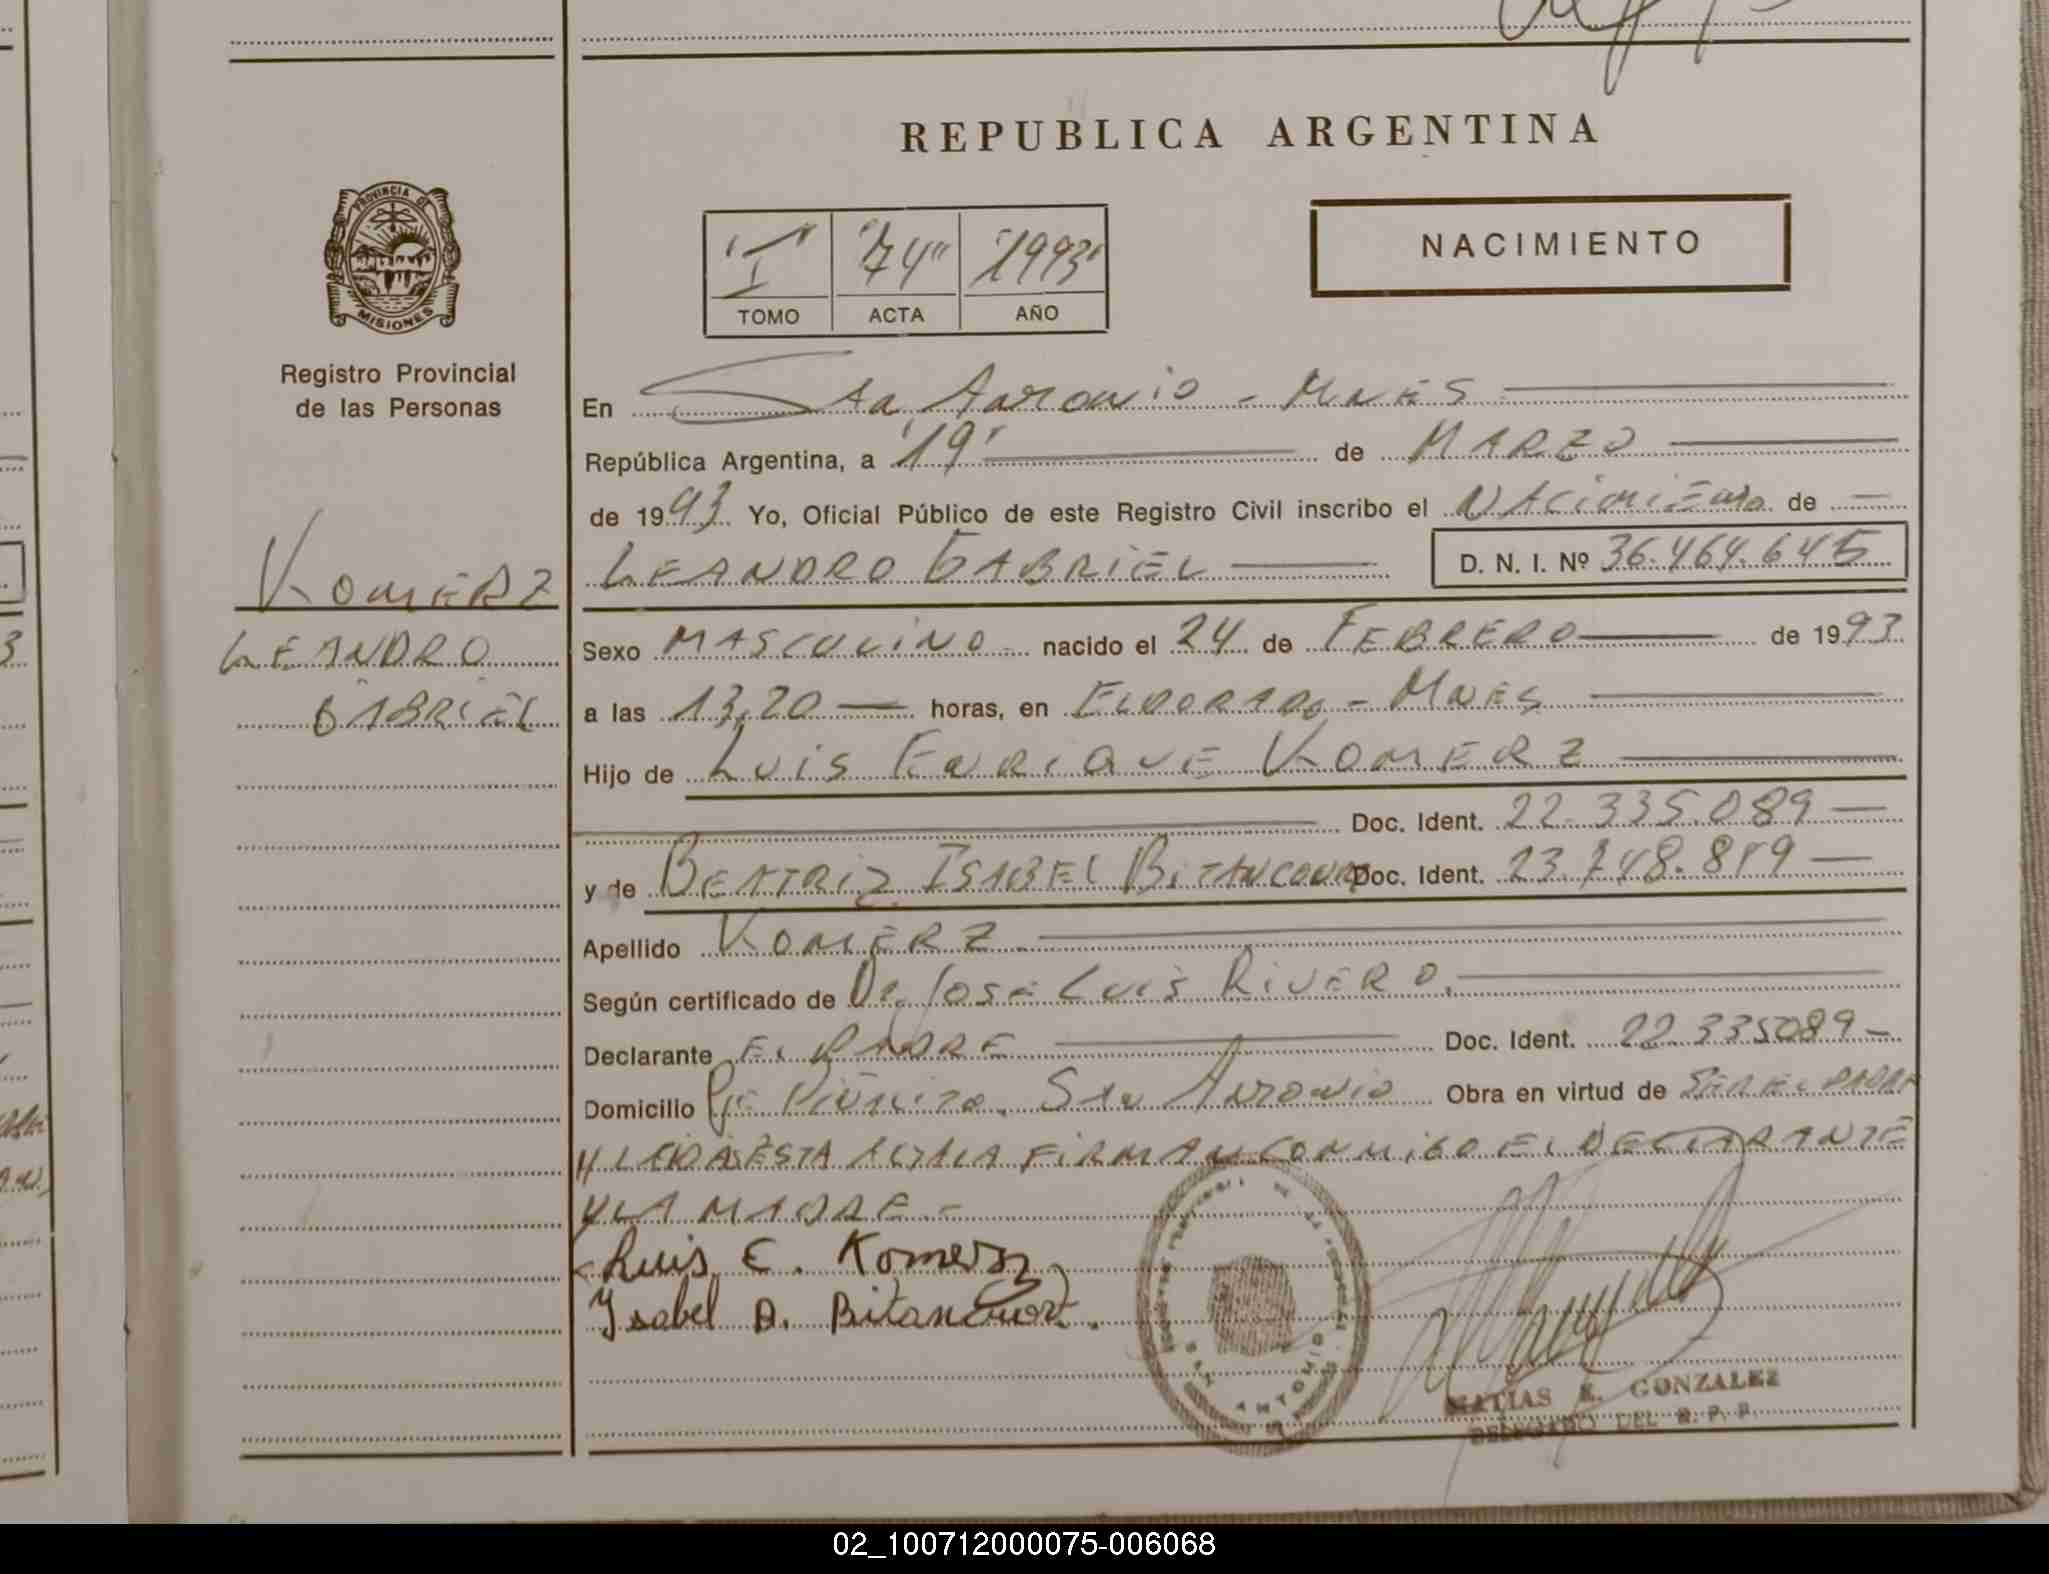 REPUBLICA ARGENTINA
PROVINCIA DE
MISIONES
Registro Provincial
de las Personas
"I" "74" "1993"
TOMO ACTA AÑO
NACIMIENTO
En San Antonio - Mnes
República Argentina, a "19" de MARZO
de 1993 Yo, Oficial Público de este Registro Civil inscribo el NACIMIENTO de
LEANDRO GABRIEL D. N. I. Nº 36.464.645
KOMERZ
LEANDRO
GABRIEL
Sexo MASCULINO nacido el 24 de FEBRERO de 1993
a las 13,20 horas, en ELDORADO - MNES
Hijo de LUIS ENRIQUE KOMERZ
Doc. Ident. 22.335.089
y de BEATRIZ ISABEL BITANCOURT Doc. Ident. 23.748.819
Apellido KOMERZ
Según certificado de Dr. JOSE LUIS RIVERO.
Declarante EL PADRE Doc. Ident. 22.335089
Domicilio San Antonio Obra en virtud de SER EL PADRE
Y LEIDA ESTA ACTA LA FIRMAN CONMIGO EL DECLARANTE
Y LA MADRE.-
Luis E. Komerz
Ysabel B. Bitancourt.
SAN ANTONIO
MATIAS E. GONZALEZ
DELEGADO DEL R. P. P.
02_100712000075-006068